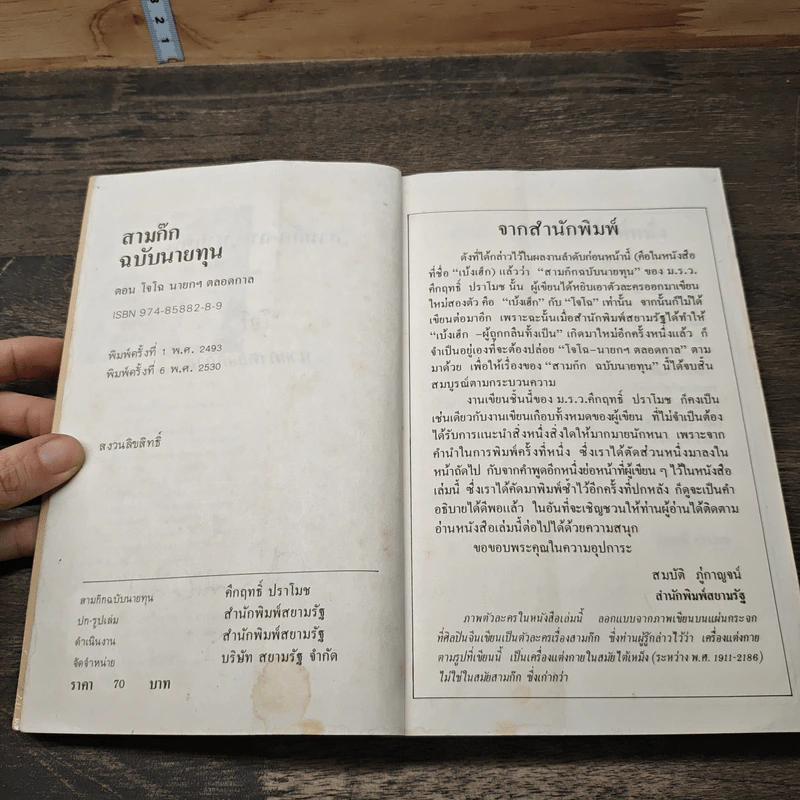 2
1
สามก๊ก
ฉบับนายทุน
ตอน โจโฉ นายกฯ ตลอดกาล
ISBN 974-85882-8-9
พิมพ์ครั้งที่ 1 พ.ศ. 2493
พิมพ์ครั้งที่ 6 พ.ศ. 2530
สงวนลิขสิทธิ์
สามก๊กฉบับนายทุน คึกฤทธิ์ ปราโมช
ปก-รูปเล่ม สำนักพิมพ์สยามรัฐ
ดำเนินงาน สำนักพิมพ์สยามรัฐ
จัดจำหน่าย บริษัท สยามรัฐ จำกัด
ราคา 70 บาท
จากสำนักพิมพ์
ดังที่ได้กล่าวไว้ในผลงานลำดับก่อนหน้านี้ (คือในหนังสือ
ที่ชื่อ “เบ้งเฮ็ก) แล้วว่า “สามก๊กฉบับนายทุน” ของ ม.ร.ว.
คึกฤทธิ์ ปราโมช นั้น ผู้เขียนได้หยิบเอาตัวละครออกมาเขียน
ใหม่สองตัว คือ “เบ้งเฮ็ก” กับ “โจโฉ” เท่านั้น จากนั้นก็ไม่ได้
เขียนต่อมาอีก เพราะฉะนั้นเมื่อสำนักพิมพ์สยามรัฐได้ทำให้
“เบ้งเฮ็ก -ผู้ถูกกลืนทั้งเป็น” เกิดมาใหม่อีกครั้งหนึ่งแล้ว ก็
จำเป็นอยู่เองที่จะต้องปล่อย “โจโฉ-นายกฯ ตลอดกาล” ตาม
มาด้วย เพื่อให้เรื่องของ “สามก๊ก ฉบับนายทุน” นี้ได้จบสิ้น
สมบูรณ์ตามกระบวนความ
งานเขียนชิ้นนี้ของ ม.ร.ว.คึกฤทธิ์ ปราโมช ก็คงเป็น
เช่นเดียวกับงานเขียนเกือบทั้งหมดของผู้เขียน ที่ไม่จำเป็นต้อง
ได้รับการแนะนำสิ่งหนึ่งสิ่งใดให้มากมายนักหนา เพราะจาก
คำนำในการพิมพ์ครั้งที่หนึ่ง ซึ่งเราได้ตัดส่วนหนึ่งมาลงใน
หน้าถัดไป กับจากคำพูดอีกหนึ่งย่อหน้าที่ผู้เขียน ๆ ไว้ในหนังสือ
เล่มนี้ ซึ่งเราได้คัดมาพิมพ์ซ้ำไว้อีกครั้งที่ปกหลัง ก็ดูจะเป็นคำ
อธิบายได้ดีพอแล้ว ในอันที่จะเชิญชวนให้ท่านผู้อ่านได้ติดตาม
อ่านหนังสือเล่มนี้ต่อไปได้ด้วยความสนุก
ขอขอบพระคุณในความอุปการะ
สมบัติ ภู่กาญจน์
สำนักพิมพ์สยามรัฐ
ภาพตัวละครในหนังสือเล่มนี้ ลอกแบบจากภาพเขียนบนแผ่นกระจก
ที่ศิลปินจีนเขียนเป็นตัวละครเรื่องสามก๊ก ซึ่งท่านผู้รู้กล่าวไว้ว่า เครื่องแต่งกาย
ตามรูปที่เขียนนี้ เป็นเครื่องแต่งกายในสมัยไต้เหม็ง (ระหว่าง พ.ศ. 1911-2186)
ไม่ใช่ในสมัยสามก๊ก ซึ่งเก่ากว่า